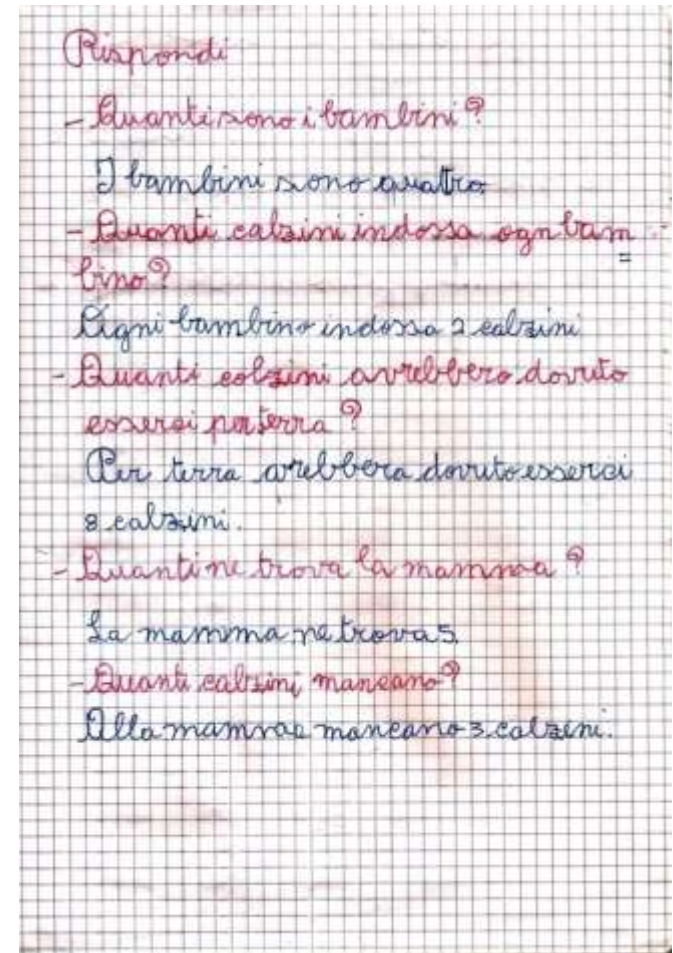 Rispondi
- Quanti sono i bambini?
I bambini sono quattro.
- Quanti calzini indossa ogn bam
bino?
Ogni bambino indossa 2 calzini
- Quanti calzini avrebbero dovuto
esserci per terra?
Per terra arebbero dovuto esserci
8 calzini.
- Quanti ne trova la mamma?
La mamma ne trova 5.
- Quanti calzini mancano?
Alla mamma mancano 3 calzini.